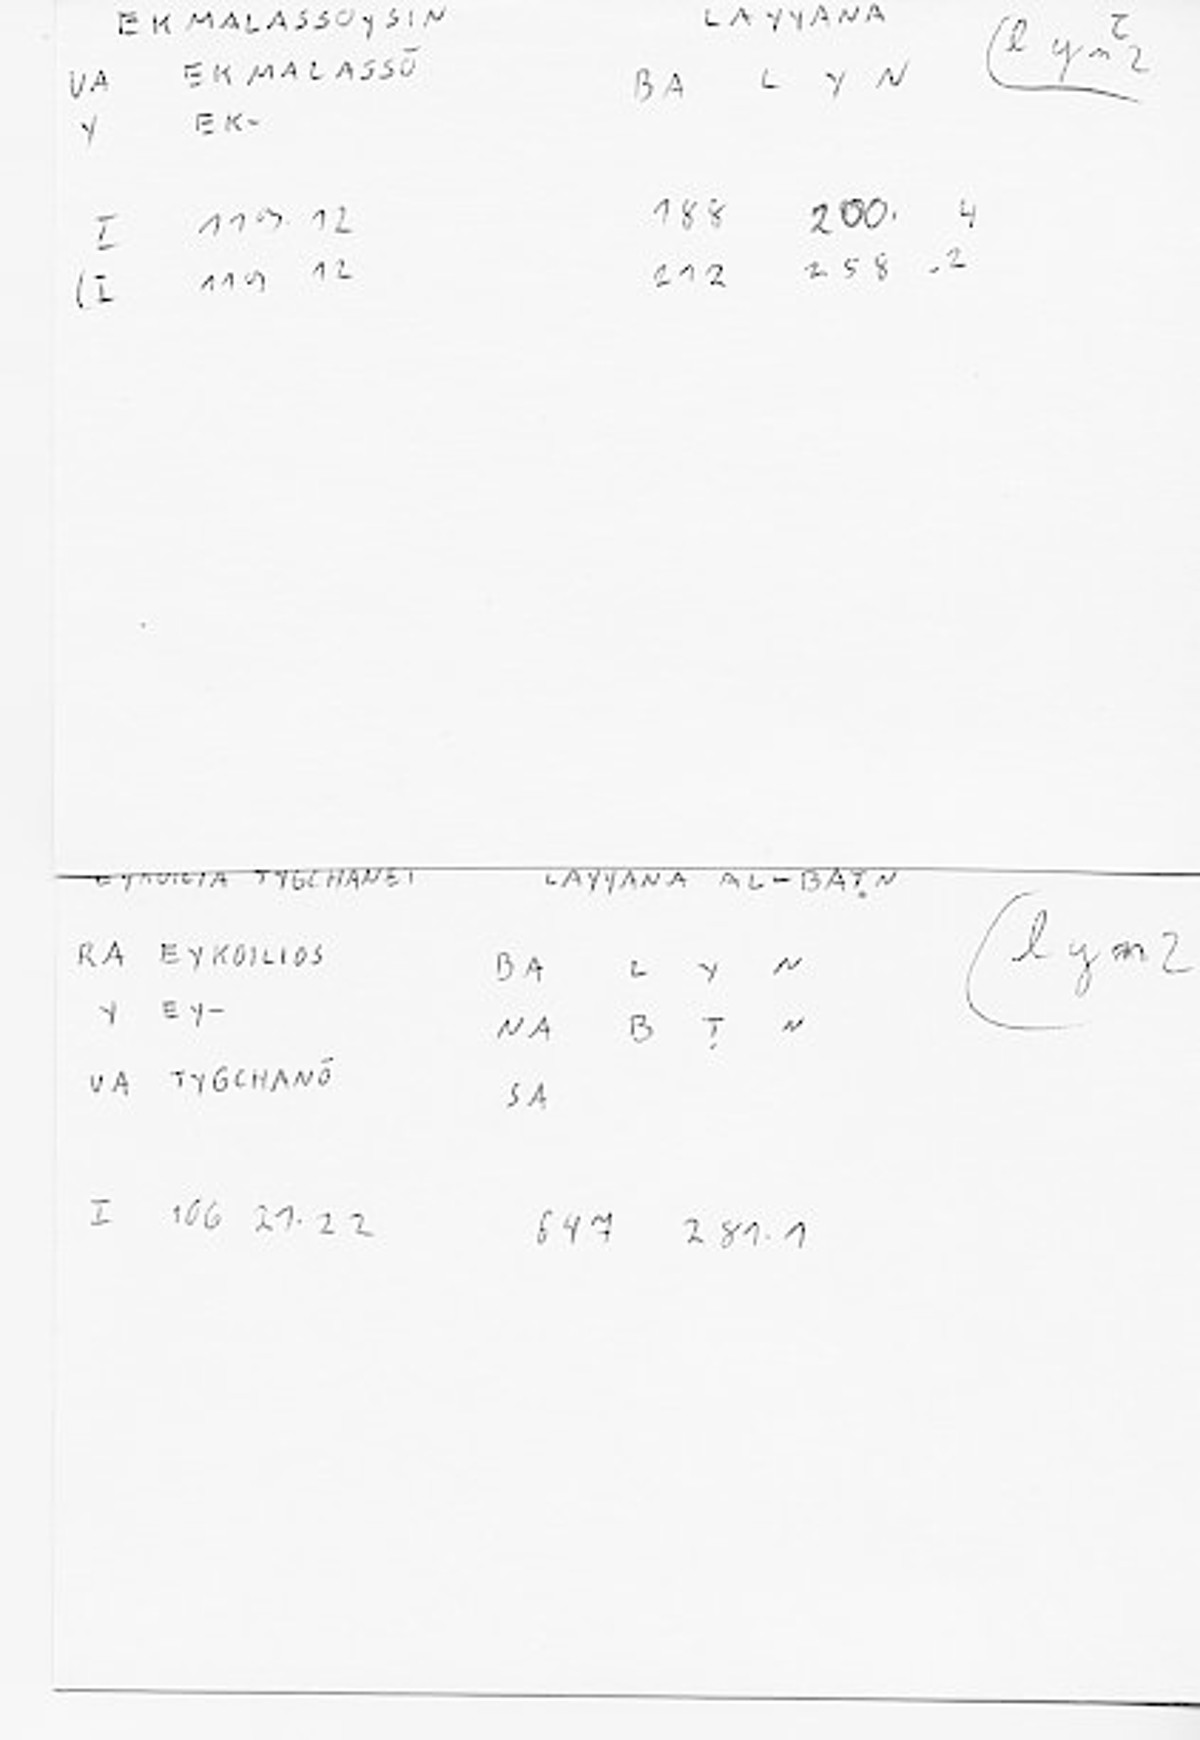 EKMALASSOYSIN LAYYANA
VA EKMALASSŌ BA L Y N (lyn2
Y EK-
I 119. 12 188 200. 4
(I 119 12 212 258 .2
EYKOILIA TYGCHANEI LAYYANA AL-BAṬN
RA EYKOILIOS BA L Y N (lyn2
Y EY- NA B Ṭ N
VA TYGCHANŌ SA
I 106 21.22 647 281.1